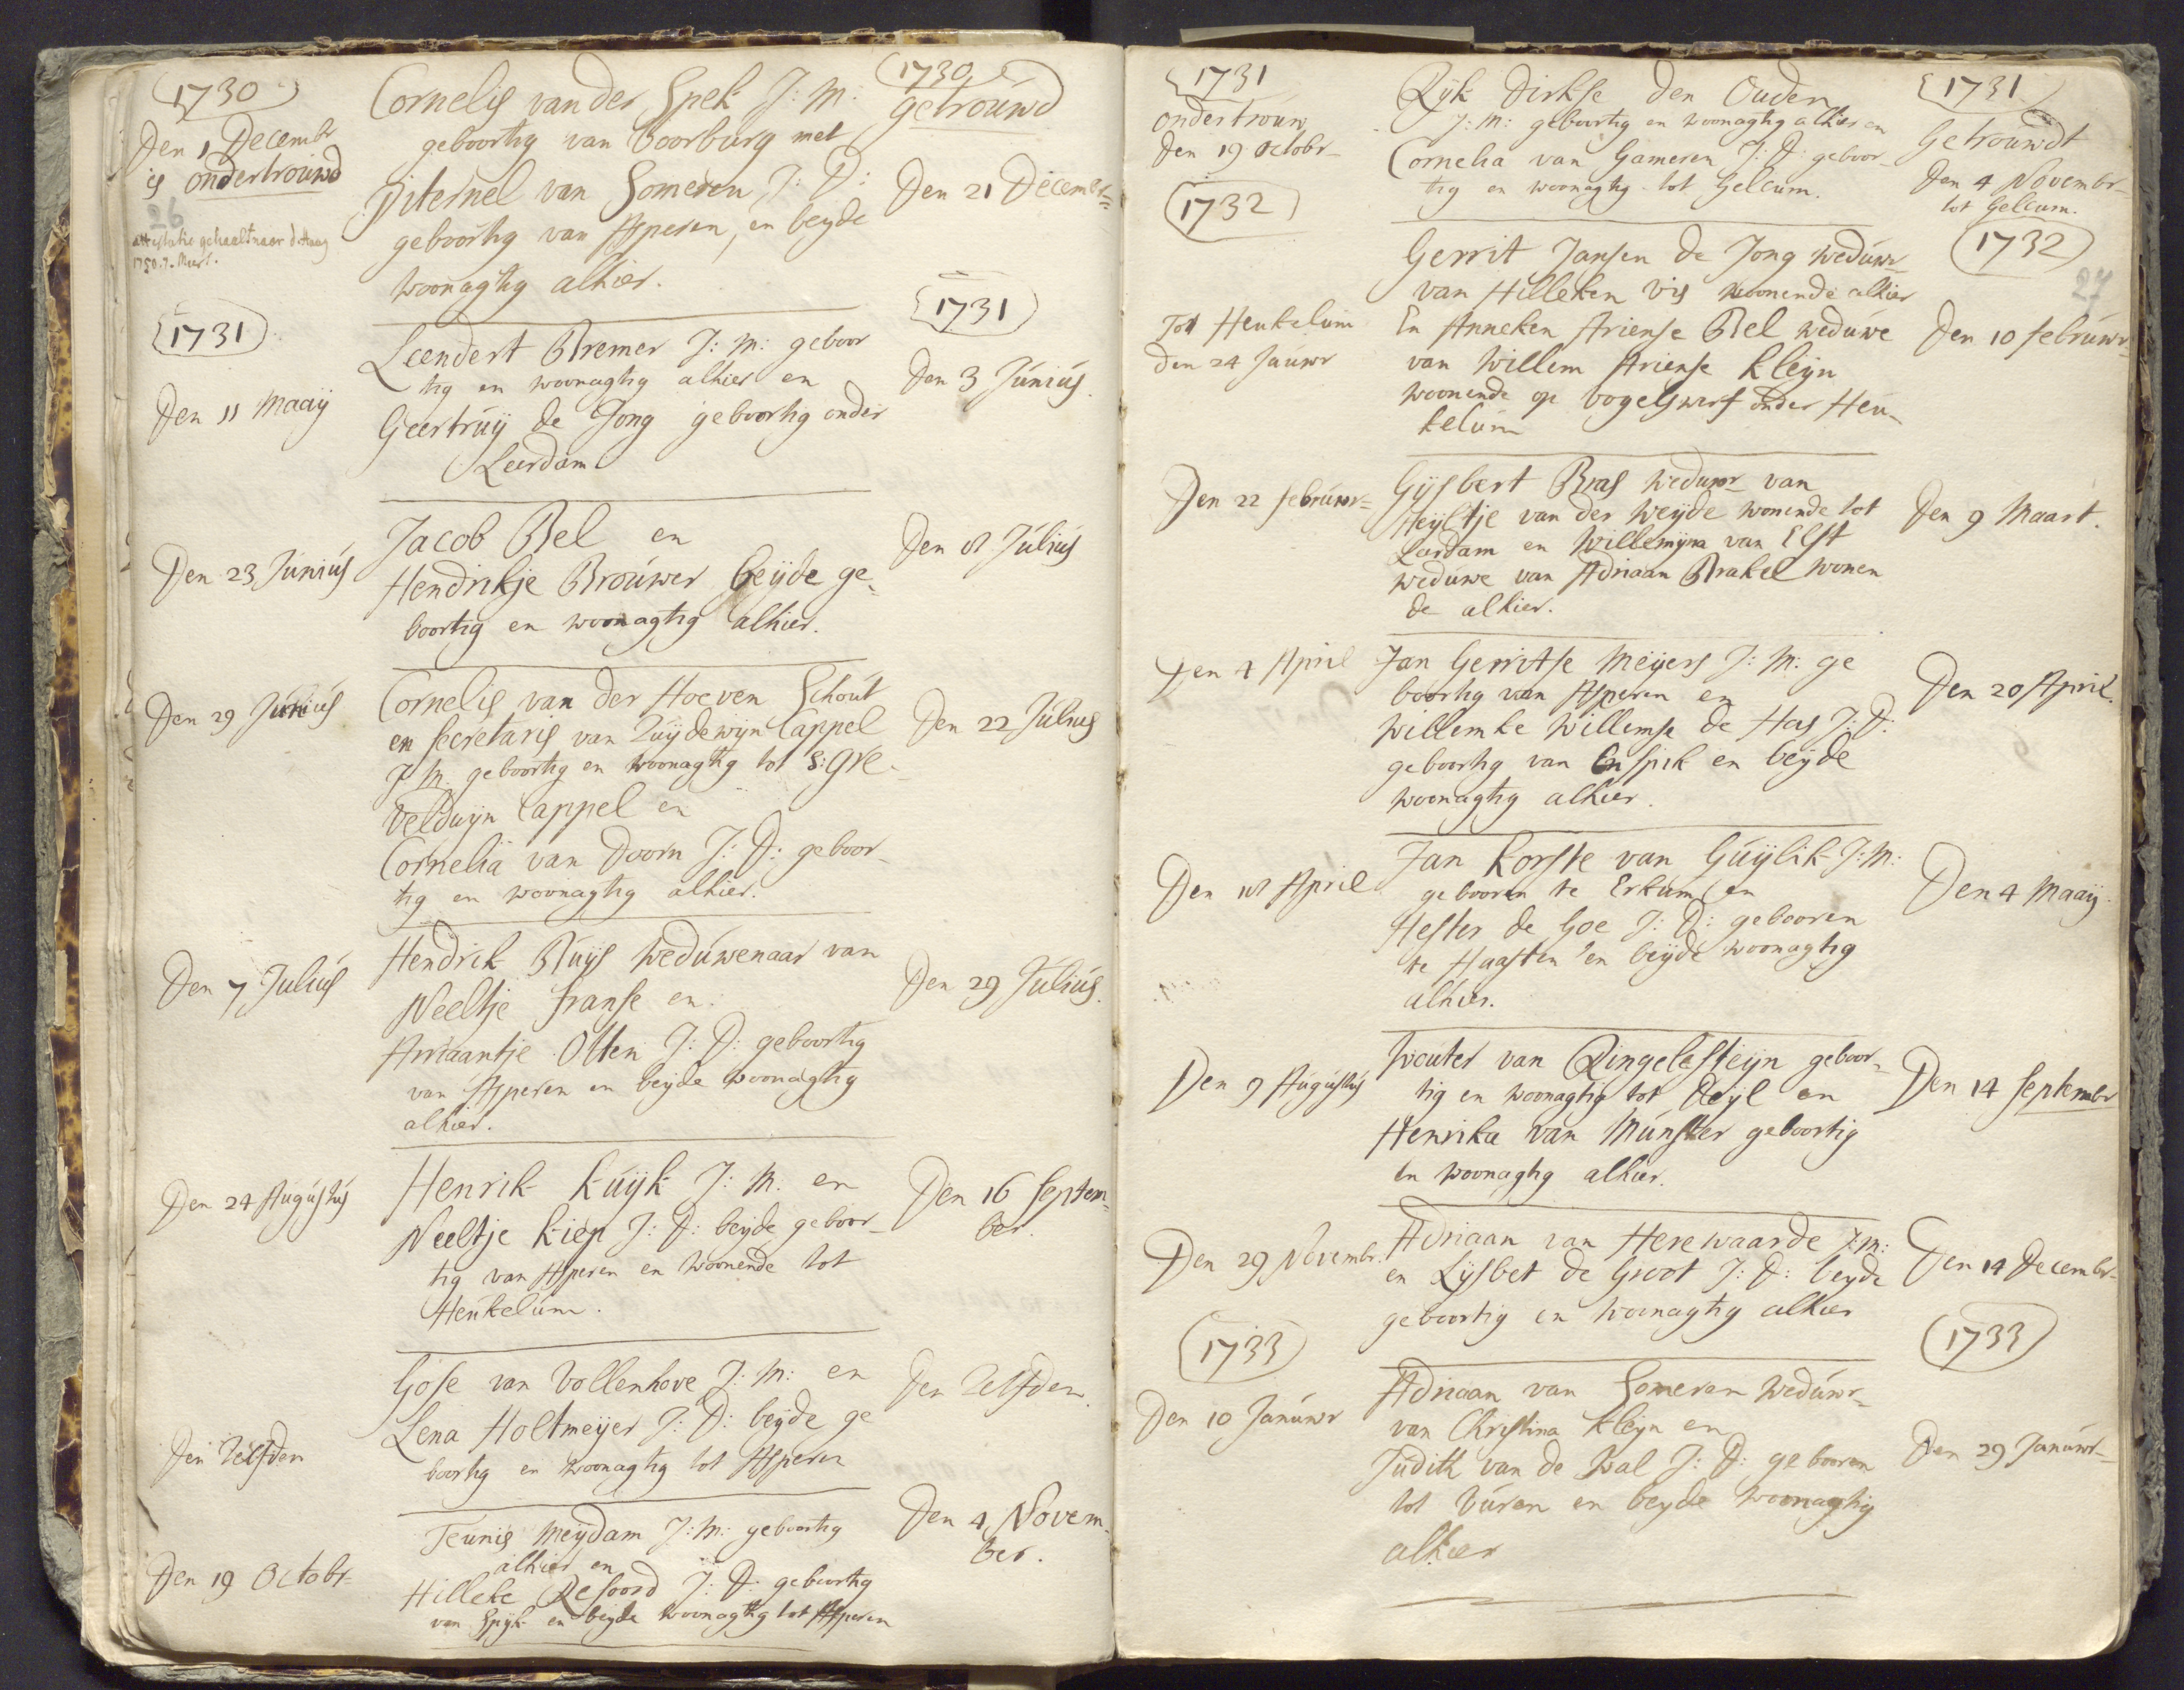 1730
Den 1 Decembr
is ondertrouwd
26
attestatie gehaelt naer d Haag
1750. 7. Meert.
Cornelis van der Spek J: M:
geboortig van Voorburg met
Piternel van Someren J: D:
geboortig van Asperen, en beyde
woonagtig alhier.
1730
getrouwd
Den 21 Decembr
1731
Den 11 Maaij
Leendert Bremer J: M: geboor
tig en woonagtig alhier en
Geertruij de Jong geboortig onder
Leerdam
1731
Den 3 Junius
Den 23 Junius
Jacob Bel en
Hendrikje Brouwer beijde ge-
boortig en woonagtig alhier.
Den 8 Julius
Den 29 Junius
Cornelis van der Hoeven Schout
en secretaris van Zuijdewijn Cappel
J M. geboortig en woonagtig tot S: Gre-
veldwijn Cappel en
Cornelia van Doorn J: D: geboor-
tig en woonagtig alhier.
Den 22 Julius
Den 7 Julius
Hendrik Buijs weduwenaar van
Neeltje Franse en
Ariaantje Otten J: D: geboortig
van Asperen en beijde woonagtig
alhier.
Den 29 Julius.
Den 24 Augustus
Henrik Kuijk J: M. en
Neeltje Kiep J: D: beijde geboor-
tig van Asperen en woonende tot
Heukelum.
Den 16 Septem-
ber.
Den Zelfden
Gose van Vollenhove J: M: en
Lena Holtmeijer J: D: beijde ge
boortig en woonagtig tot Asperen
Den Zelfden.
Den 19 Octobr-
Teunis Meijdam J: M: geboortig
alhier en
Hilleke Resoord J: D: geboortig
van Spijk en beijde woonagtig tot Asperen
Den 4 Novem-
ber.
1731
ondertrouw
Den 19 Octobr-
Rijk Dirkse den Ouden
J: M: geboortig en woonagtig alhier en
Cornelia van Gameren J: D: geboor-
tig en woonagtig tot Gellcum.
1731
Getrouwdt
Den 4 Novembr-
tot Gellcum.
1732
1732
27
Tot Heukelum
den 24 Januwr
Gerrit Jansen de Jong weduwr-
van Hilleken Vis woonende alhier
En Anneken Ariense Bel weduwe
van Willem Ariense Kleijn
woonende op Vogelswerf onder Heu-
kelum
Den 10 Februwr-
Den 22 Februwr-
Gijsbert Bras weduwr- van
Heijltje van der Weijde wonende tot
Leerdam en Willemijna van Elst
weduwe van Adriaan Brakel wonen
de alhier.
Den 9 Maart.
Den 4 April
Jan Gerritse Meijers J: M: ge
boortig van Asperen en
Willemke Willemse de Has J: D:
geboortig van Enspik en beijde
woonagtig alhier.
Den 20 April.
Den 18 April
Jan Korste van Guijlik J: M:
gebooren te Erkum en
Hester de Goe J: D: gebooren
te Haasten en beijde woonagtig
alhier.
Den 4 Maaij
Den 9 Augustus
Wouter van Ringelesteijn geboor-
tig en woonagtig tot Deijl en
Henrika van Munster geboortig
en woonagtig alhier.
Den 14 Septembr
Den 29 Novembr.
Adriaan van Herewaarde J: M:
en Lijsbet de Groot J: D: beyde
geboortig en woonagtig alhier
Den 14 Decembr-
1733
1733
Den 10 Januwr
Adriaan van Someren weduwr-
van Christina Kleijn en
Judith van de Wal J: D: gebooren
tot Vuren en beyde woonagtig
alhier
Den 29 Januwr-